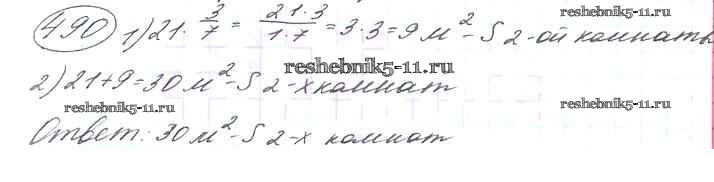 490 1) 21 · 3/7 = 21·3/1·7 = 3·3 = 9 м² - S 2-ой комнаты
reshebnik5-11.ru
2) 21+9=30 м² - S 2-х комнат
reshebnik5-11.ru
reshebnik5-11.ru
Ответ: 30 м² - S 2-х комнат